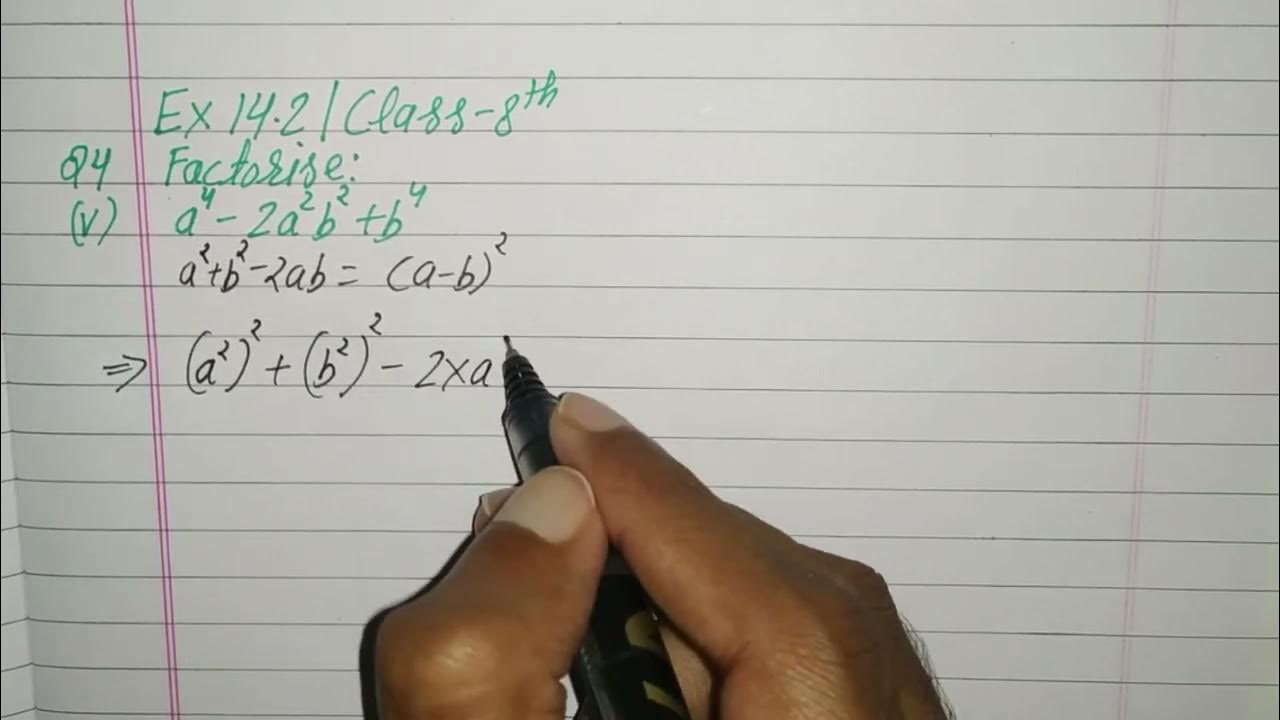 Ex 14.2 | Class-8th
Q4 Factorise:
(v) a⁴ - 2a²b² + b⁴
a² + b² - 2ab = (a-b)²
⇒ (a²)² + (b²)² - 2×a